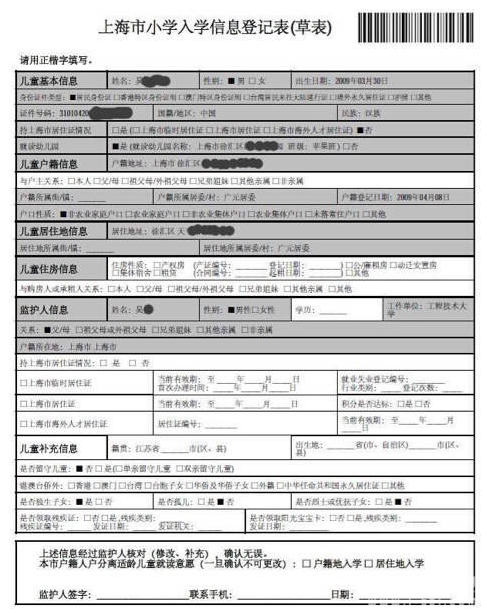 上海市小学入学信息登记表(草表)
请用正楷字填写。
儿童基本信息 姓名：吴 性别：■男 □女 出生日期：2009年03月30日
身份证件类型：■居民身份证 □香港特区身份证明 □澳门特区身份证明 □台湾居民来往大陆通行证 □境外永久居住证 □护照 □其他
证件号码：31010420 国籍/地区：中国 民族：汉族
持上海市居住证情况 □是(□上海市临时居住证 □上海市居住证 □上海市海外人才居住证) ■否
就读幼儿园 ■是(就读幼儿园名称：上海市徐汇区 班级：苹果班) □否
儿童户籍信息 户籍地址：上海市徐汇区
与户主关系：□本人 □父/母 □祖父母/外祖父母 □兄弟姐妹 □其他亲属 □非亲属
户籍所属街/镇：______ 户籍所属居委/村：广元居委 户籍登记日期：2009年04月08日
户口性质：■非农业家庭户口 □农业家庭户口 □非农业集体户口 □农业集体户口 □未落常住户口 □其他
儿童居住地信息 居住地址：徐汇区天
居住地所属街/镇：______ 居住地所属居委/村：广元居委
儿童住房信息 住房性质：□产权房 (产证编号：______ 登记日期：______) □公/廉租房 □动迁安置房
□集体宿舍 □租赁 (合同编号：______ 起租日期：______) □其他
与购房人或承租人关系：□本人 □父/母 □祖父母/外祖父母 □兄弟姐妹 □其他亲属 □非亲属
监护人信息 姓名：吴 性别：■男性□女性 学历：______ 工作单位：工程技术大学
关系：■父/母 □祖父母或外祖父母 □兄弟姐妹 □其他亲属 □非亲属
户籍所在地：上海市 上海市
持上海市居住证情况：□ 是 □ 否
□上海市临时居住证 当前有效期：至____年____月____日
首次办理时间：____年____月____日 就业失业登记编号：______
行业类别：____登记次数：____
□上海市居住证 当前有效期：至____年____月____日 积分是否达标：□是 □否
□上海市海外人才居住证 居住证编号：______ 当前有效期：至____年____月____日
儿童补充信息 籍贯：江苏省______市(区、县) 出生地：______省(市、自治区)______市(区、县)
是否留守儿童：■ 否 □ 是(□单亲留守儿童 □双亲留守儿童)
港澳台侨外：□香港 □澳门 □台湾 □台胞子女 □华侨及华侨子女 □外籍 □中华任命共和国永久居住证 □其他
是否独生子女：■ 是 □ 否 是否孤儿：□ 是 ■ 否 是否烈士或优抚子女：□ 是 ■ 否
是否领取残疾证：□否 □是,残疾类别：______
残疾证编号：______ 发证日期：______ 发证机关：______ 是否领取阳光宝宝卡：□否 □是,残疾类别：______
发证日期：______
上述信息经过监护人核对(修改、补充)，确认无误。
本市户籍人户分离适龄儿童就读意愿(一旦确认不可更改)：□ 户籍地入学 □ 居住地入学
监护人签字：______联系手机：______日期：______